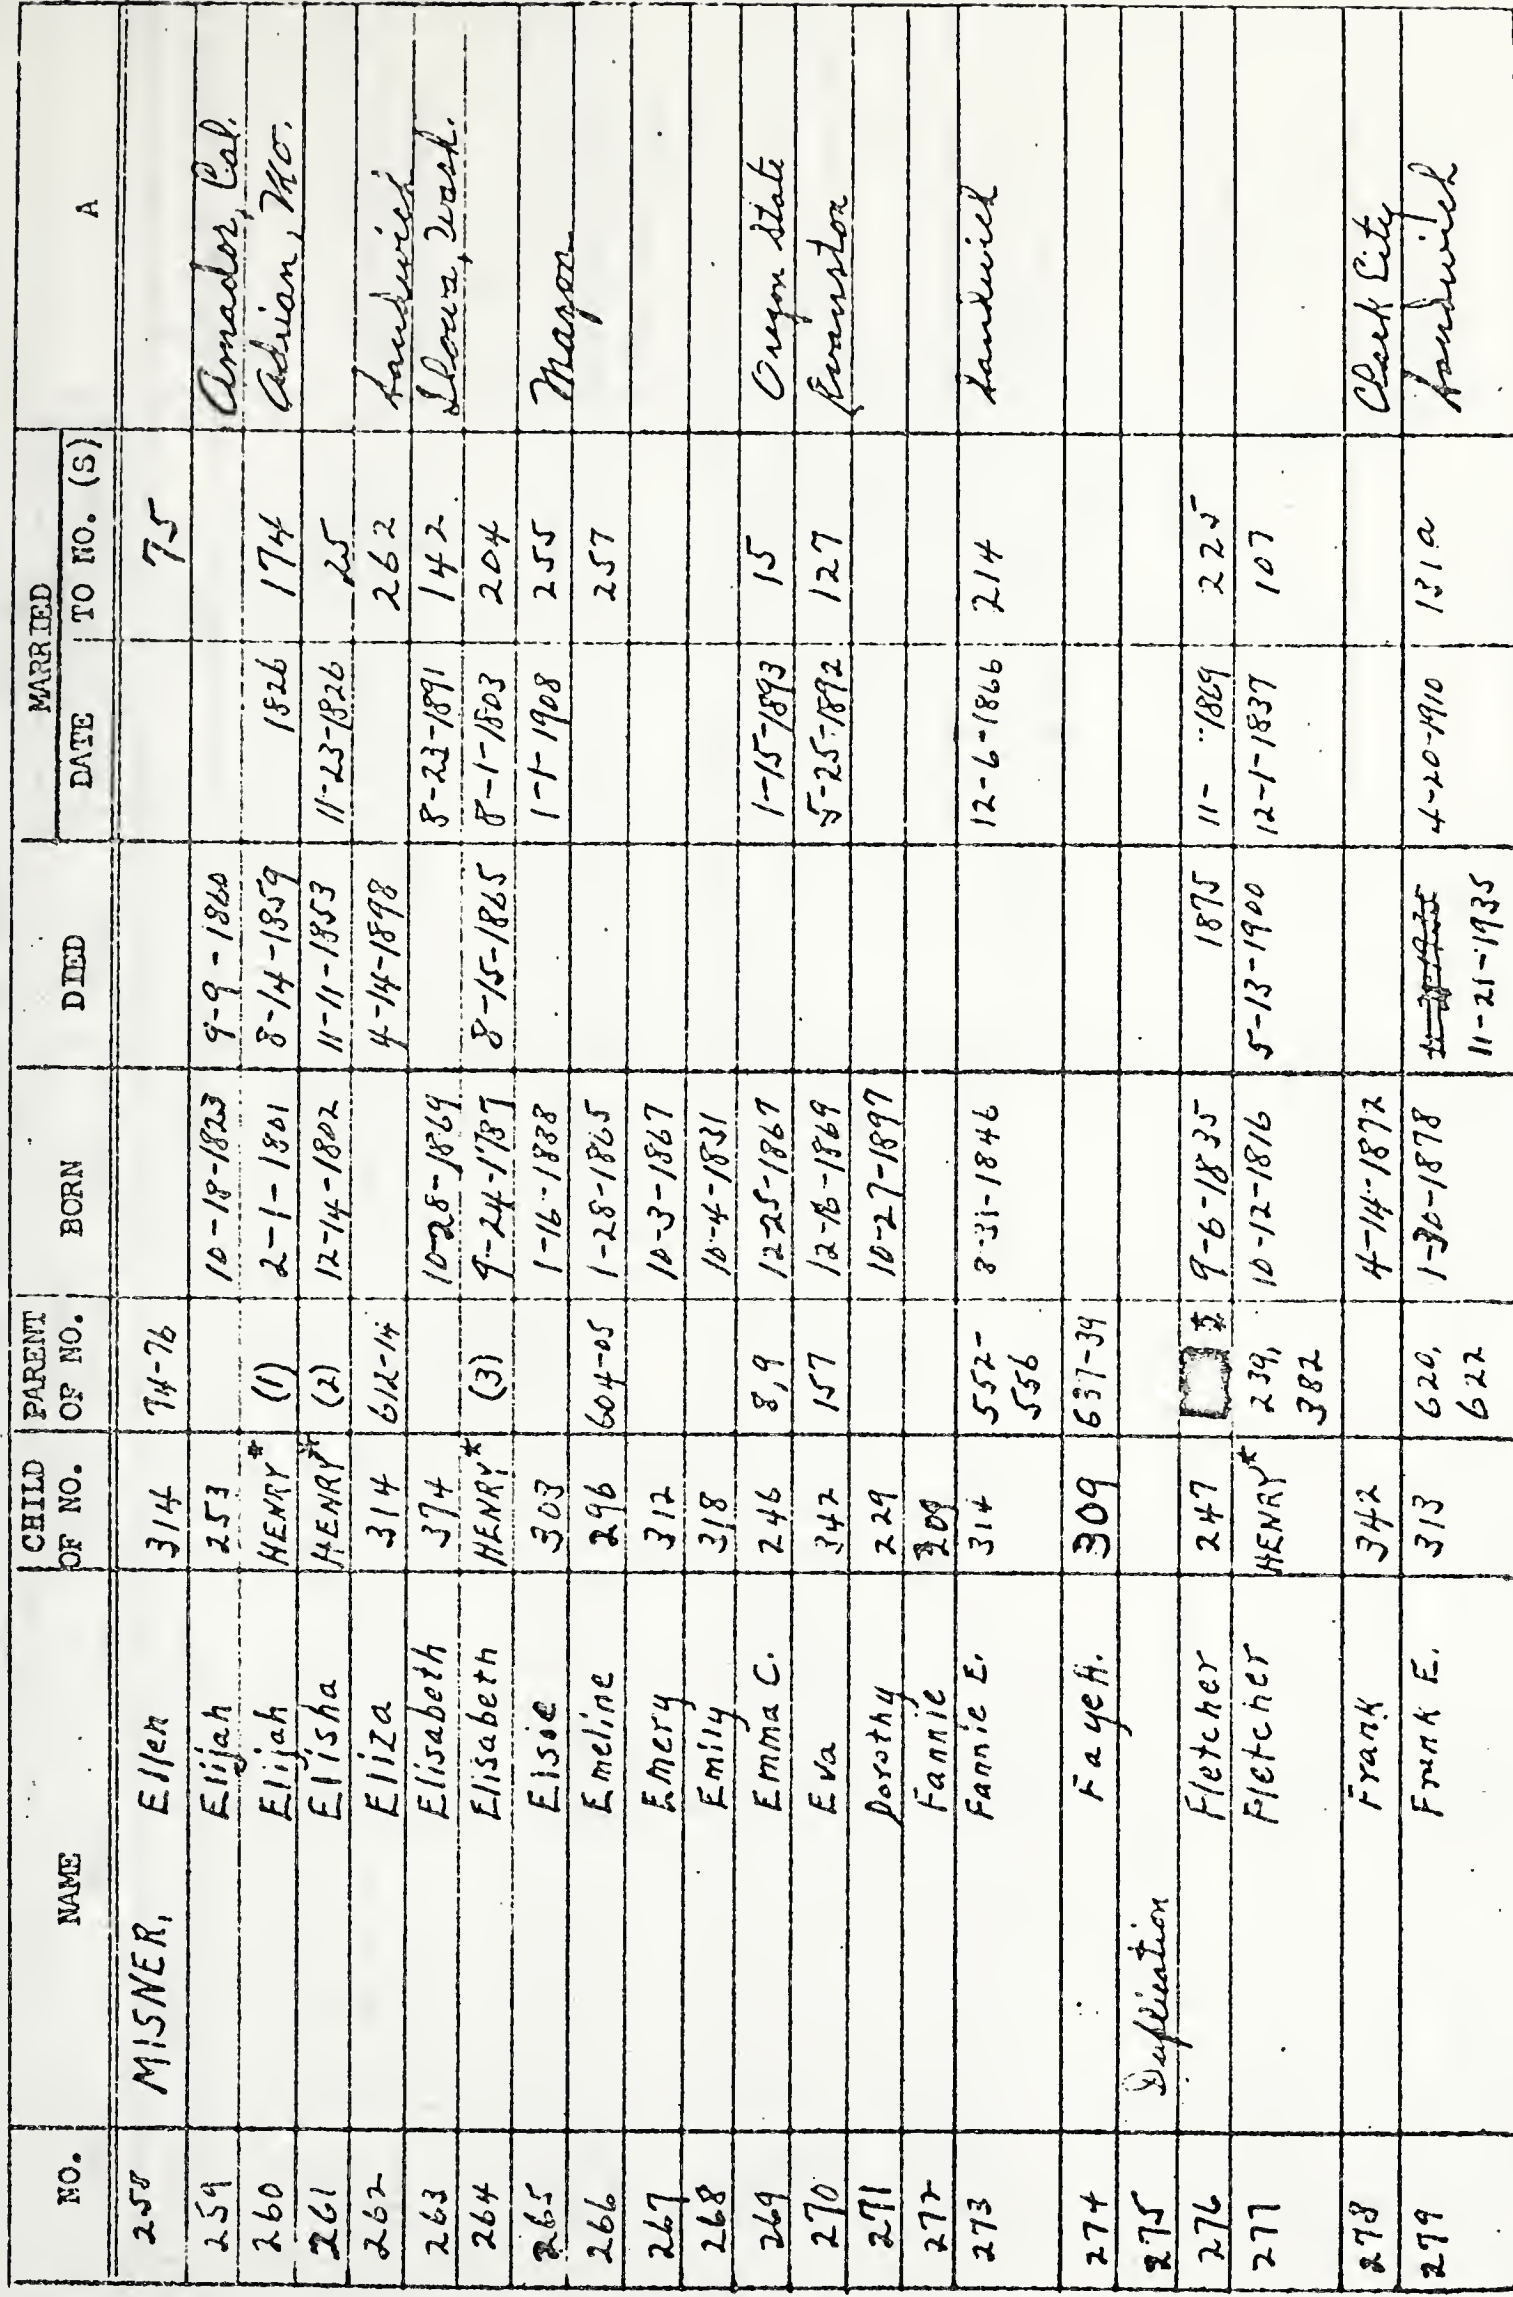 NO. NAME CHILD OF NO. PARENT OF NO. BORN DIED MARRIED DATE TO NO. (S) A
258 MISNER, Ellen 314 74-76 75
259 Elijah 253 10-18-1823 9-9-1860 Amador, Cal.
260 Elijah HENRY* (1) 2-1-1801 8-14-1859 1826 174 Adrian, Mo.
261 Elisha HENRY* (2) 12-14-1802 11-11-1853 11-23-1826 25
262 Eliza 314 612-14 4-14-1898 262 Sandwich
263 Elisabeth 374 10-28-1869 8-23-1891 142 Wash.
264 Elisabeth HENRY* (3) 9-24-1787 8-15-1865 8-1-1803 204
265 Elsie 303 1-16-1888 1-1-1908 255 Mazon
266 Emeline 296 604-05 1-28-1865 257
267 Emery 312 10-3-1867
268 Emily 318 10-4-1831
269 Emma C. 246 8,9 12-25-1867 1-15-1893 15 Oregon State
270 Eva 342 157 12-16-1869 5-25-1892 127 Evanston
271 Dorothy 229 10-27-1897
272 Fannie 209
273 Fannie E. 314 552- 8-31-1846 12-6-1866 214 Sandwich
556
274 Faye H. 309 637-39
275 Duplication
276 Fletcher 247 9-6-1835 1875 11- "1869 225
277 Fletcher HENRY* 239, 10-12-1816 5-13-1900 12-1-1837 107
382
278 Frank 342 4-14-1872 Clark City
279 Frank E. 313 620, 1-30-1878 4-20-1910 131a Sandwich
622 11-21-1935